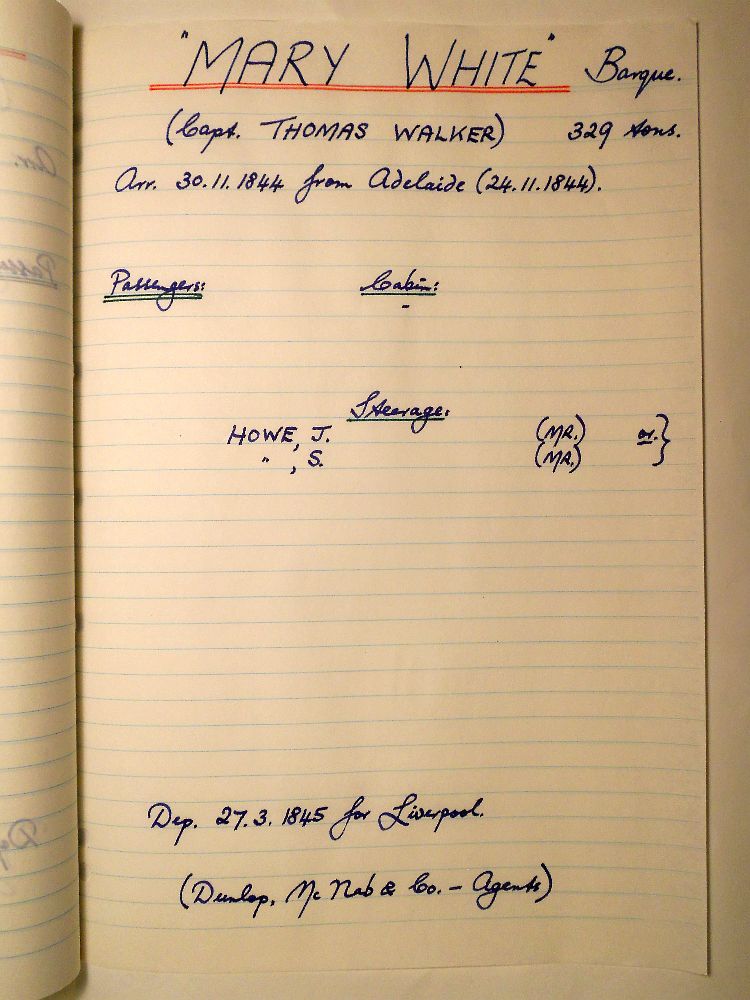 "MARY WHITE" Barque.
(Capt. THOMAS WALKER) 329 tons.
Arr. 30.11.1844 from Adelaide (24.11.1844).
Passengers: Cabin:
-
Steerage:
HOWE, J. (MR.) or. }
" , S. (MR.)
Dep. 27.3.1845 for Liverpool.
(Dunlop, McNab & Co. - Agents)